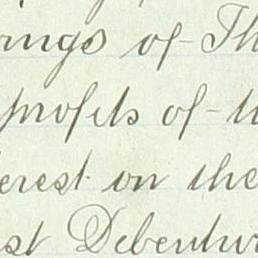 rings of Th
profits of t
erest on the
st Debentur